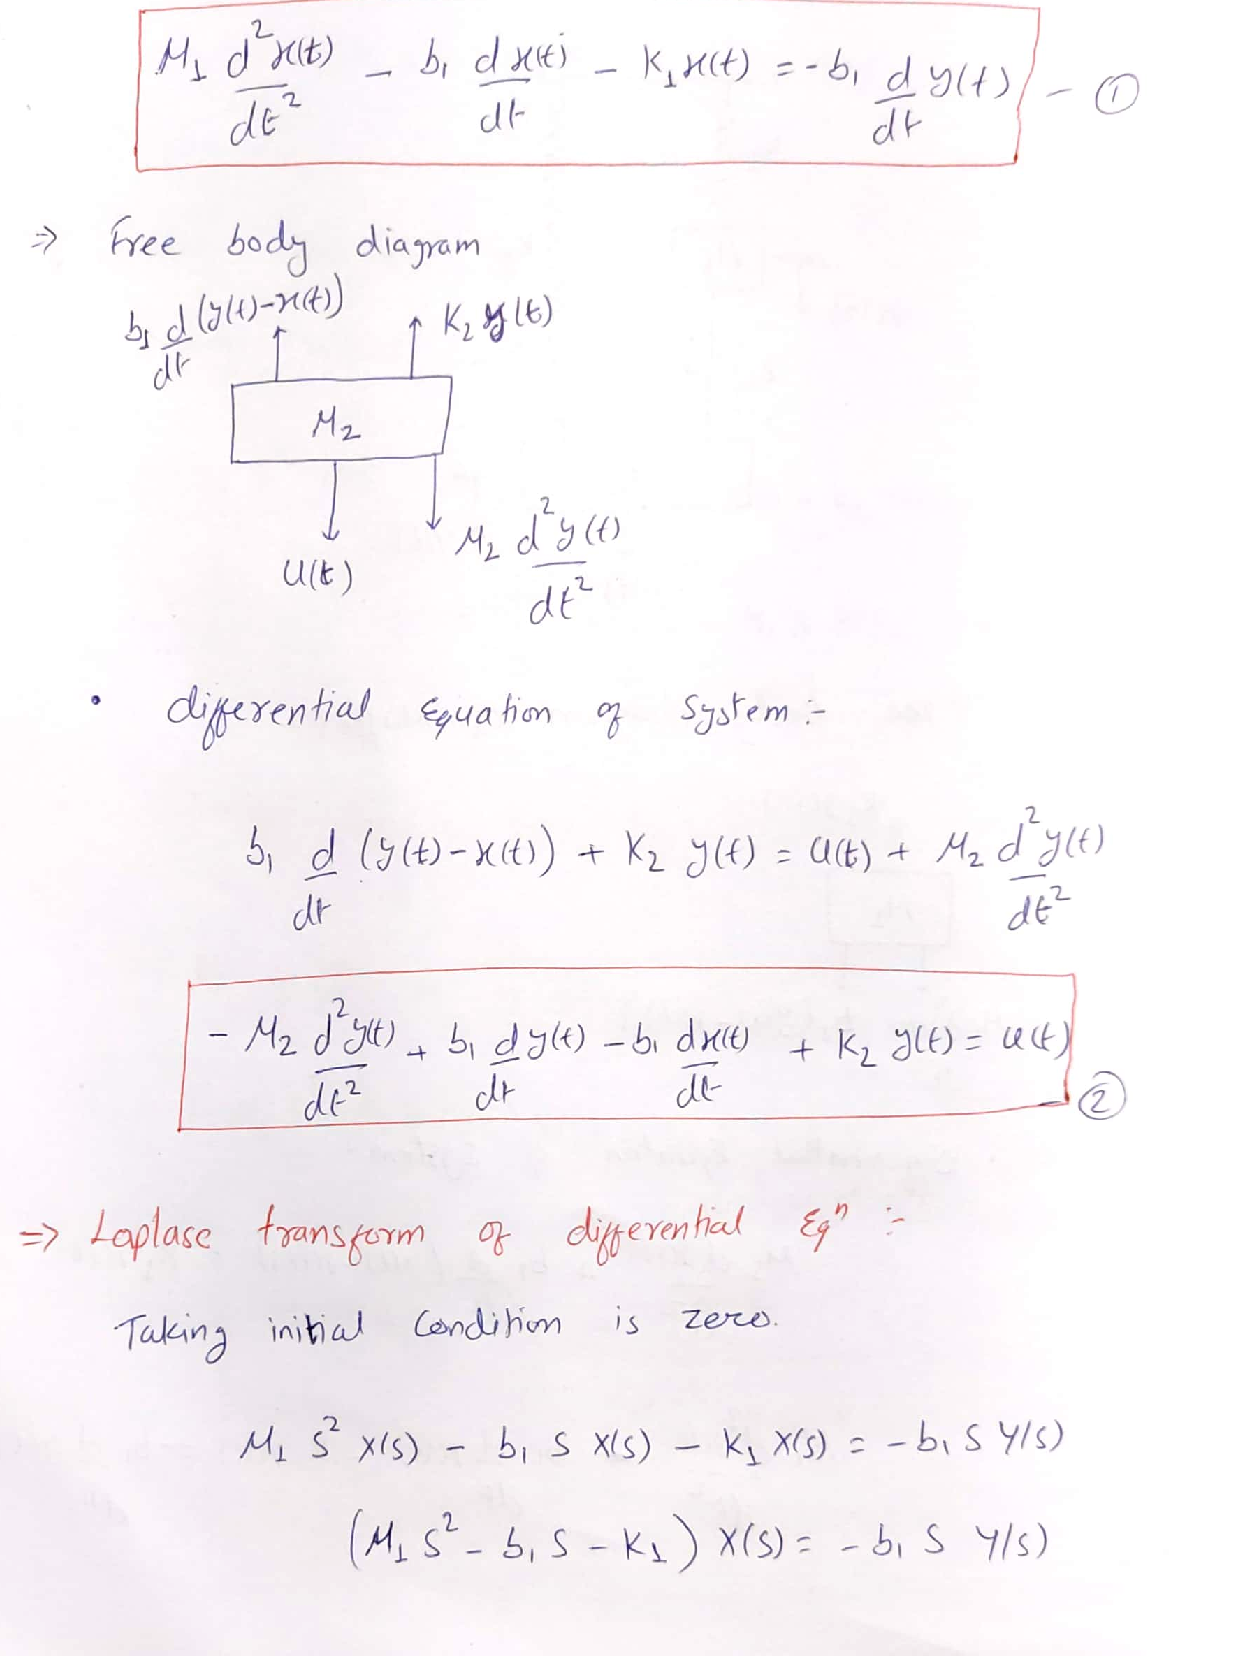 M₁ d²x(t)/dt² - b₁ dx(t)/dt - K₁x(t) = -b₁ d/dt y(t) - ①
⇒ Free body diagram
b₁ d/dt (y(t)-x(t))
K₂ y(t)
M₂
U(t)
M₂ d²y(t)/dt²
• differential Equation of System :-
b₁ d/dt (y(t)-x(t)) + K₂ y(t) = U(t) + M₂ d²y(t)/dt²
- M₂ d²y(t)/dt² + b₁ dy(t)/dt - b₁ dx(t)/dt + K₂ y(t) = u(t) - ②
=> Laplase transform of differential Eqⁿ :-
Taking initial Condition is zero.
M₁ S² X(S) - b₁ S X(S) - K₁ X(S) = - b₁ S Y(S)
(M₁ S² - b₁ S - K₁) X(S) = - b₁ S Y(S)